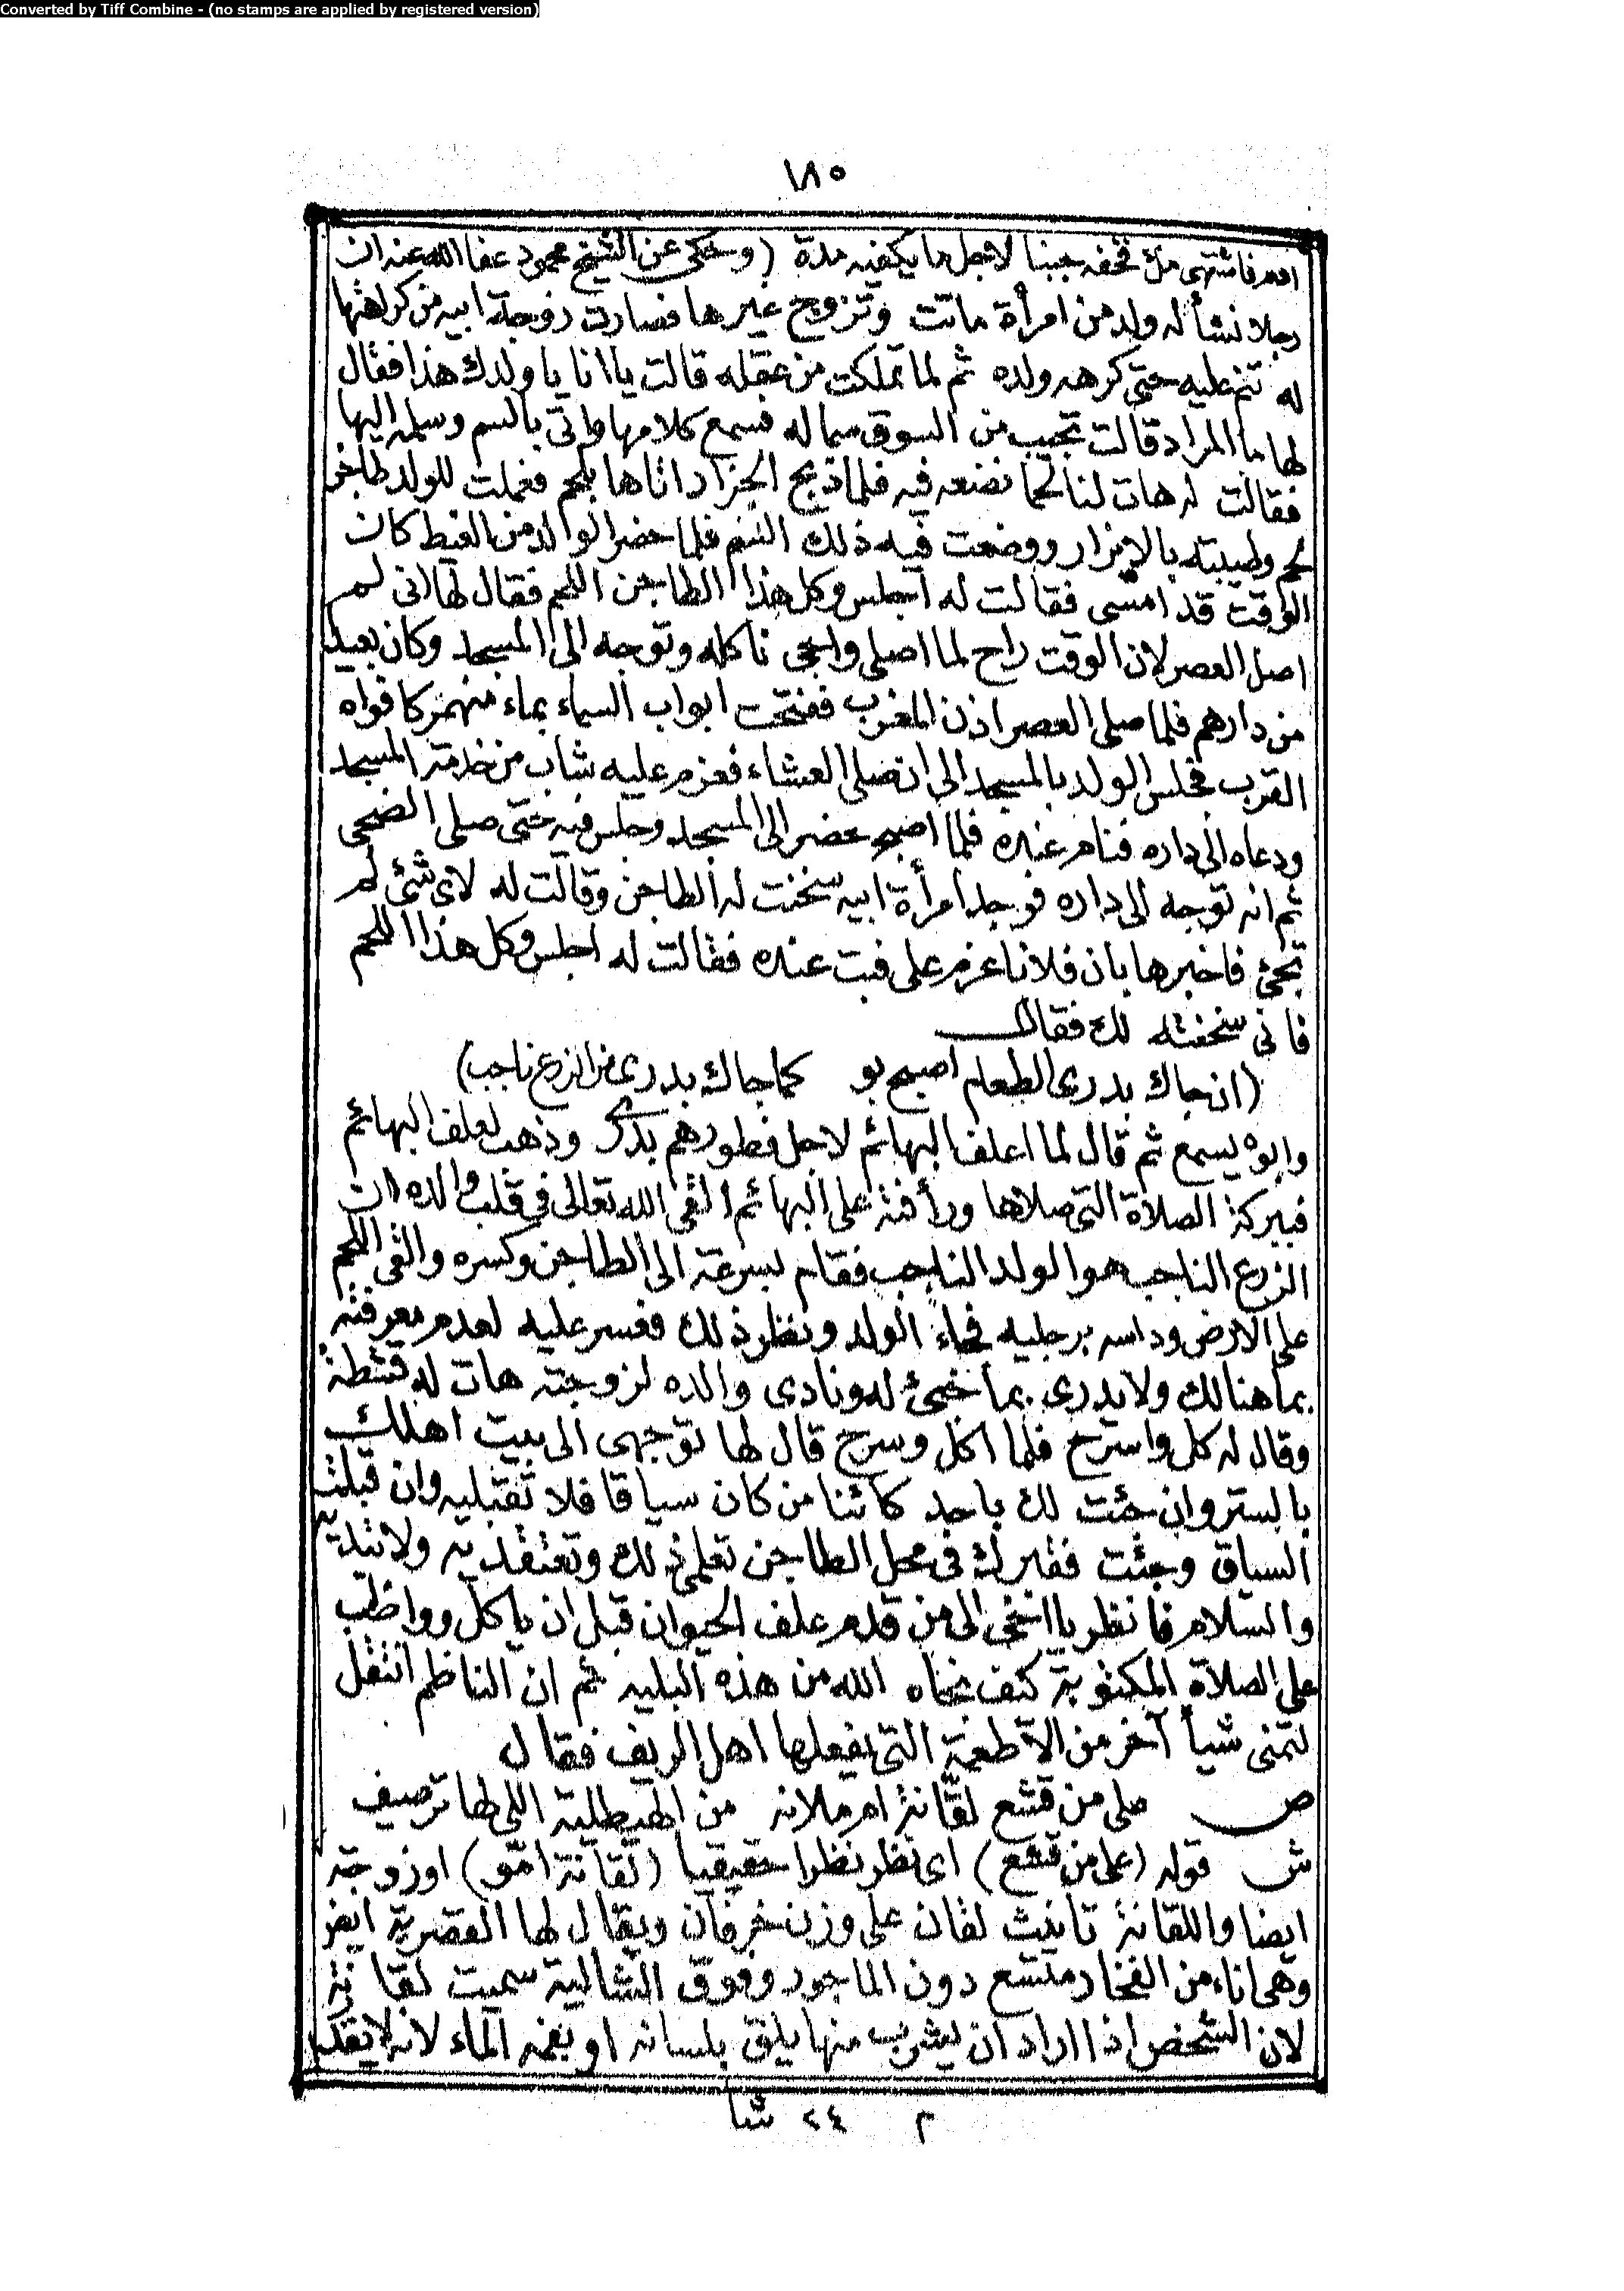 Converted by Tiff Combine - (no stamps are applied by registered version)
١٨٥
مدة (وحكى عن الشيخ محمود عفا الله عنه ان
رجلا نشأ له ولد من امرأة ماتت وتزوج غيرها فصارت زوجة ابيه من كراهتها
له تنم عليه حتى كره ولده ثم لما تملكت من عقله قالت يا انا يا ولدك هذا فقال
لها ما المراد قالت تجيب من السوق سما له فسمع كلامها واتى بالسم وسلمه اليها
فقالت له هات لنا لحما نضعه فيه فلما ذبح الجزار اتاها بلحم فعملت للولد طاجن
لحم وطيبته بالابزار ووضعت فيه ذلك السم فلما حضر الولد من الغيط كان
الوقت قد امسى فقالت له اجلس وكل هذا الطاجن اللحم فقال لها انى لم
اصل العصر لان الوقت راح لما اصلى واجى ناكله وتوجه الى المسجد وكان بعيد
من دارهم فلما صلى العصر اذن المغرب ففتحت ابواب السماء بماء منهمر كافواه
القرب فجلس الولد بالمسجد الى ان صلى العشاء فعزم عليه شاب من خدمة المسجد
ودعاه الى داره فنام عنده فلما اصبح حضر الى المسجد وجلس فيه حتى صلى الضحى
ثم انه توجه الى داره فوجد امرأة ابيه سخنت له الطاجن وقالت له لاى شئ لم
تجئ فاخبرها بان فلانا عزم على فبت عنده فقالت له اجلس وكل هذا اللحم
فانى سخنته لك فقال
(ان جاك بدرى الطعام اصبح بو كما جاك بدرى من الزرع ناجب)
وابوه يسمع ثم قال لما اعلف البهائم لاجل فطورهم بدرى وذهب لعلف البهائم
فببركة الصلاة التى صلاها ورأفته على البهائم القى الله تعالى فى قلب والده ان
الزرع الناجب هو الولد الناجب فقام بسرعة الى الطاجن وكسره والقى اللحم
على الارض وداسه برجليه فجاء الولد ونظر ذلك فعسر عليه لعدم معرفته
بما هنالك ولا يدرى بما خبئ له ونادى والده لزوجته هات له قشطة
وقال له كل واسرح فلما اكل وسرح قال لها توجهى الى بيت اهلك
بالستر وان جئت لك باحد كائنا من كان سياقا فلا تقبليه وان قبلت
السياق وجئت فقبرك فى محل الطاجن تعلمى ذلك وتعتقديه ولا تبديه
والسلام فانظر يا اخى الى من قدم علف الحيوان قبل ان ياكل وواظب
على الصلاة المكتوبة كيف نجاه الله من هذه البلية ثم ان الناظم انتقل
لتمنى شيأ آخر من الاطعمة التى يفعلها اهل الريف فقال
ص على من قشع لقانة ام ملانه من الهيطلية اللى لها ترصيف
ش قوله (على من قشع) اى نظر نظرا حقيقيا (لقانة امو) او زوجته
ايضا واللقانة تانيث لقان على وزن خرفان ويقال لها القصرية ايضا
وهى اناء من الفخار متسع دون الماجور وفوق الشالية سميت لقانة
لان الشخص اذا اراد ان يشرب منها يلق بلسانه او بفمه الماء لانه لا يقدر
م ٢٤ شا